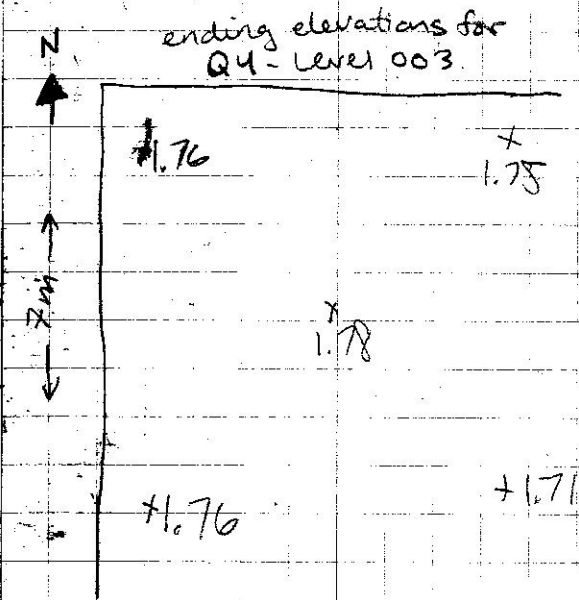 N
ending elevations for
Q4 - Level 003
+1.76
+
1.75
x
1.78
+1.76
+1.71